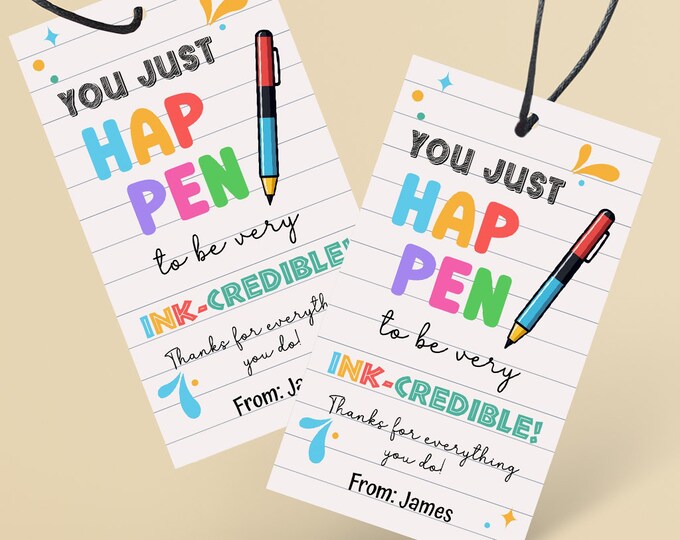 YOU JUST
HAP
PEN
to be very
INK-CREDIBLE!
Thanks for everything
you do!
From: Ja
YOU JUST
HAP
PEN
to be very
INK-CREDIBLE!
Thanks for everything
you do!
From: James